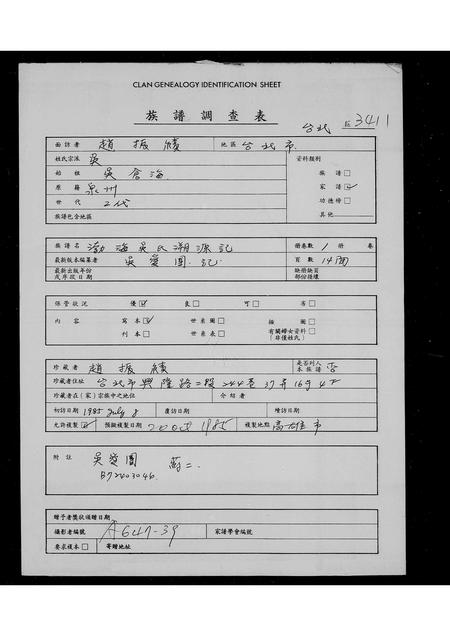 CLAN GENEALOGY IDENTIFICATION SHEET
族譜調查表
台北 區 3411
面訪者 趙振績 地區 台北市
姓氏宗派 吳 資料類別
始祖 吳倉海 族譜□
原籍 泉州 家譜☑
世代 2代 功德榜□
族譜包含地區 其他
族譜名 渤海吳氏溯源記 冊卷數 1 冊 卷
最新版本編纂者 吳愛園.記 頁數 14面
最新出版年份或序跋日期 缺冊缺頁部份指壞
保管狀況 優☑ 良□ 可□ 劣□
內容 寫本☑ 世系圖□ 插圖□
刊本□ 世系表□ 有關婦女資料□(非僅姓氏)
珍藏者 趙振績 是否列入本族譜 否
珍藏者住址 台北市興隆路二段244巷37弄16号4F
珍藏者在(家)宗族中之地位 介紹者
初訪日期 1985 July 8 復訪日期 續訪日期
允許複製☑ 預擬複製日期 1985 複製地點 高雄市
附註 吳愛園
B72403046
贈予者獎狀頒贈日期
攝影者編號 A647-39 家譜學會編號
要求複本□ 寄贈地址